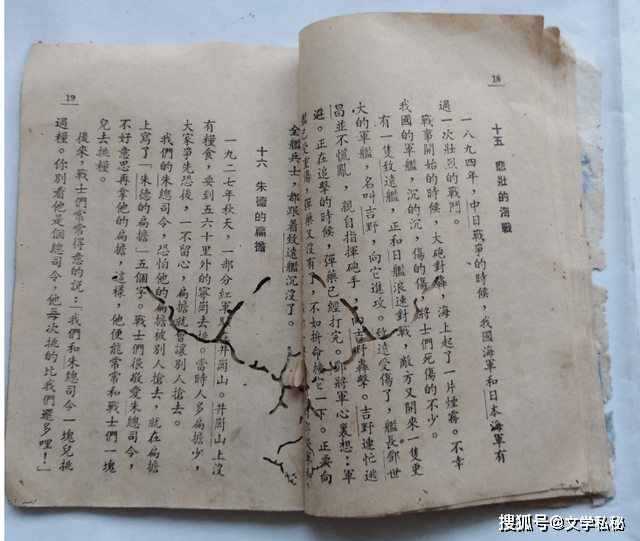 18
十五 悲壯的海戰
一八九四年,中日戰爭的時候,我國海軍和日本海軍有
過一次壯烈的戰鬥。
戰事開始的時候,大砲對轟,海上起了一片煙霧。不幸
我國的軍艦,沉的沉,傷的傷,將士們死傷的不少。
有一隻致遠艦,正和日艦浪速對戰,敵方又開來一隻更
大的軍艦,名叫吉野,向它進攻。致遠受傷了,艦長鄧世
昌並不慌亂,親自指揮砲手,向吉野轟擊。吉野連忙逃
避。正在追擊的時候,彈藥已經打完。鄧將軍心裏想:軍
艦已受重傷,彈藥又沒有了,不如拚命撞它一下。正要向
19
全艦兵士,都跟着致遠艦沉沒了。
十六 朱德的扁擔
一九二七年秋天,一部分紅軍駐在井崗山。井崗山上沒
有糧食,要到五六十里外的寧崗去挑。當時人多扁擔少,
大家爭先恐後,一不留心,扁擔就會讓別人搶去。
我們的朱總司令,恐怕他的扁擔被別人搶去,就在扁擔
上寫了「朱德的扁擔」五個字。戰士們很敬愛朱總司令,
不好意思再拿他的扁擔,這樣,他便能常常和戰士們一塊
兒去挑糧。
後來,戰士們常常得意的說:「我們和朱總司令一塊兒挑
過糧。你別看他是個總司令,他每次挑的比我們還多哩!」
搜狐号@文学私秘